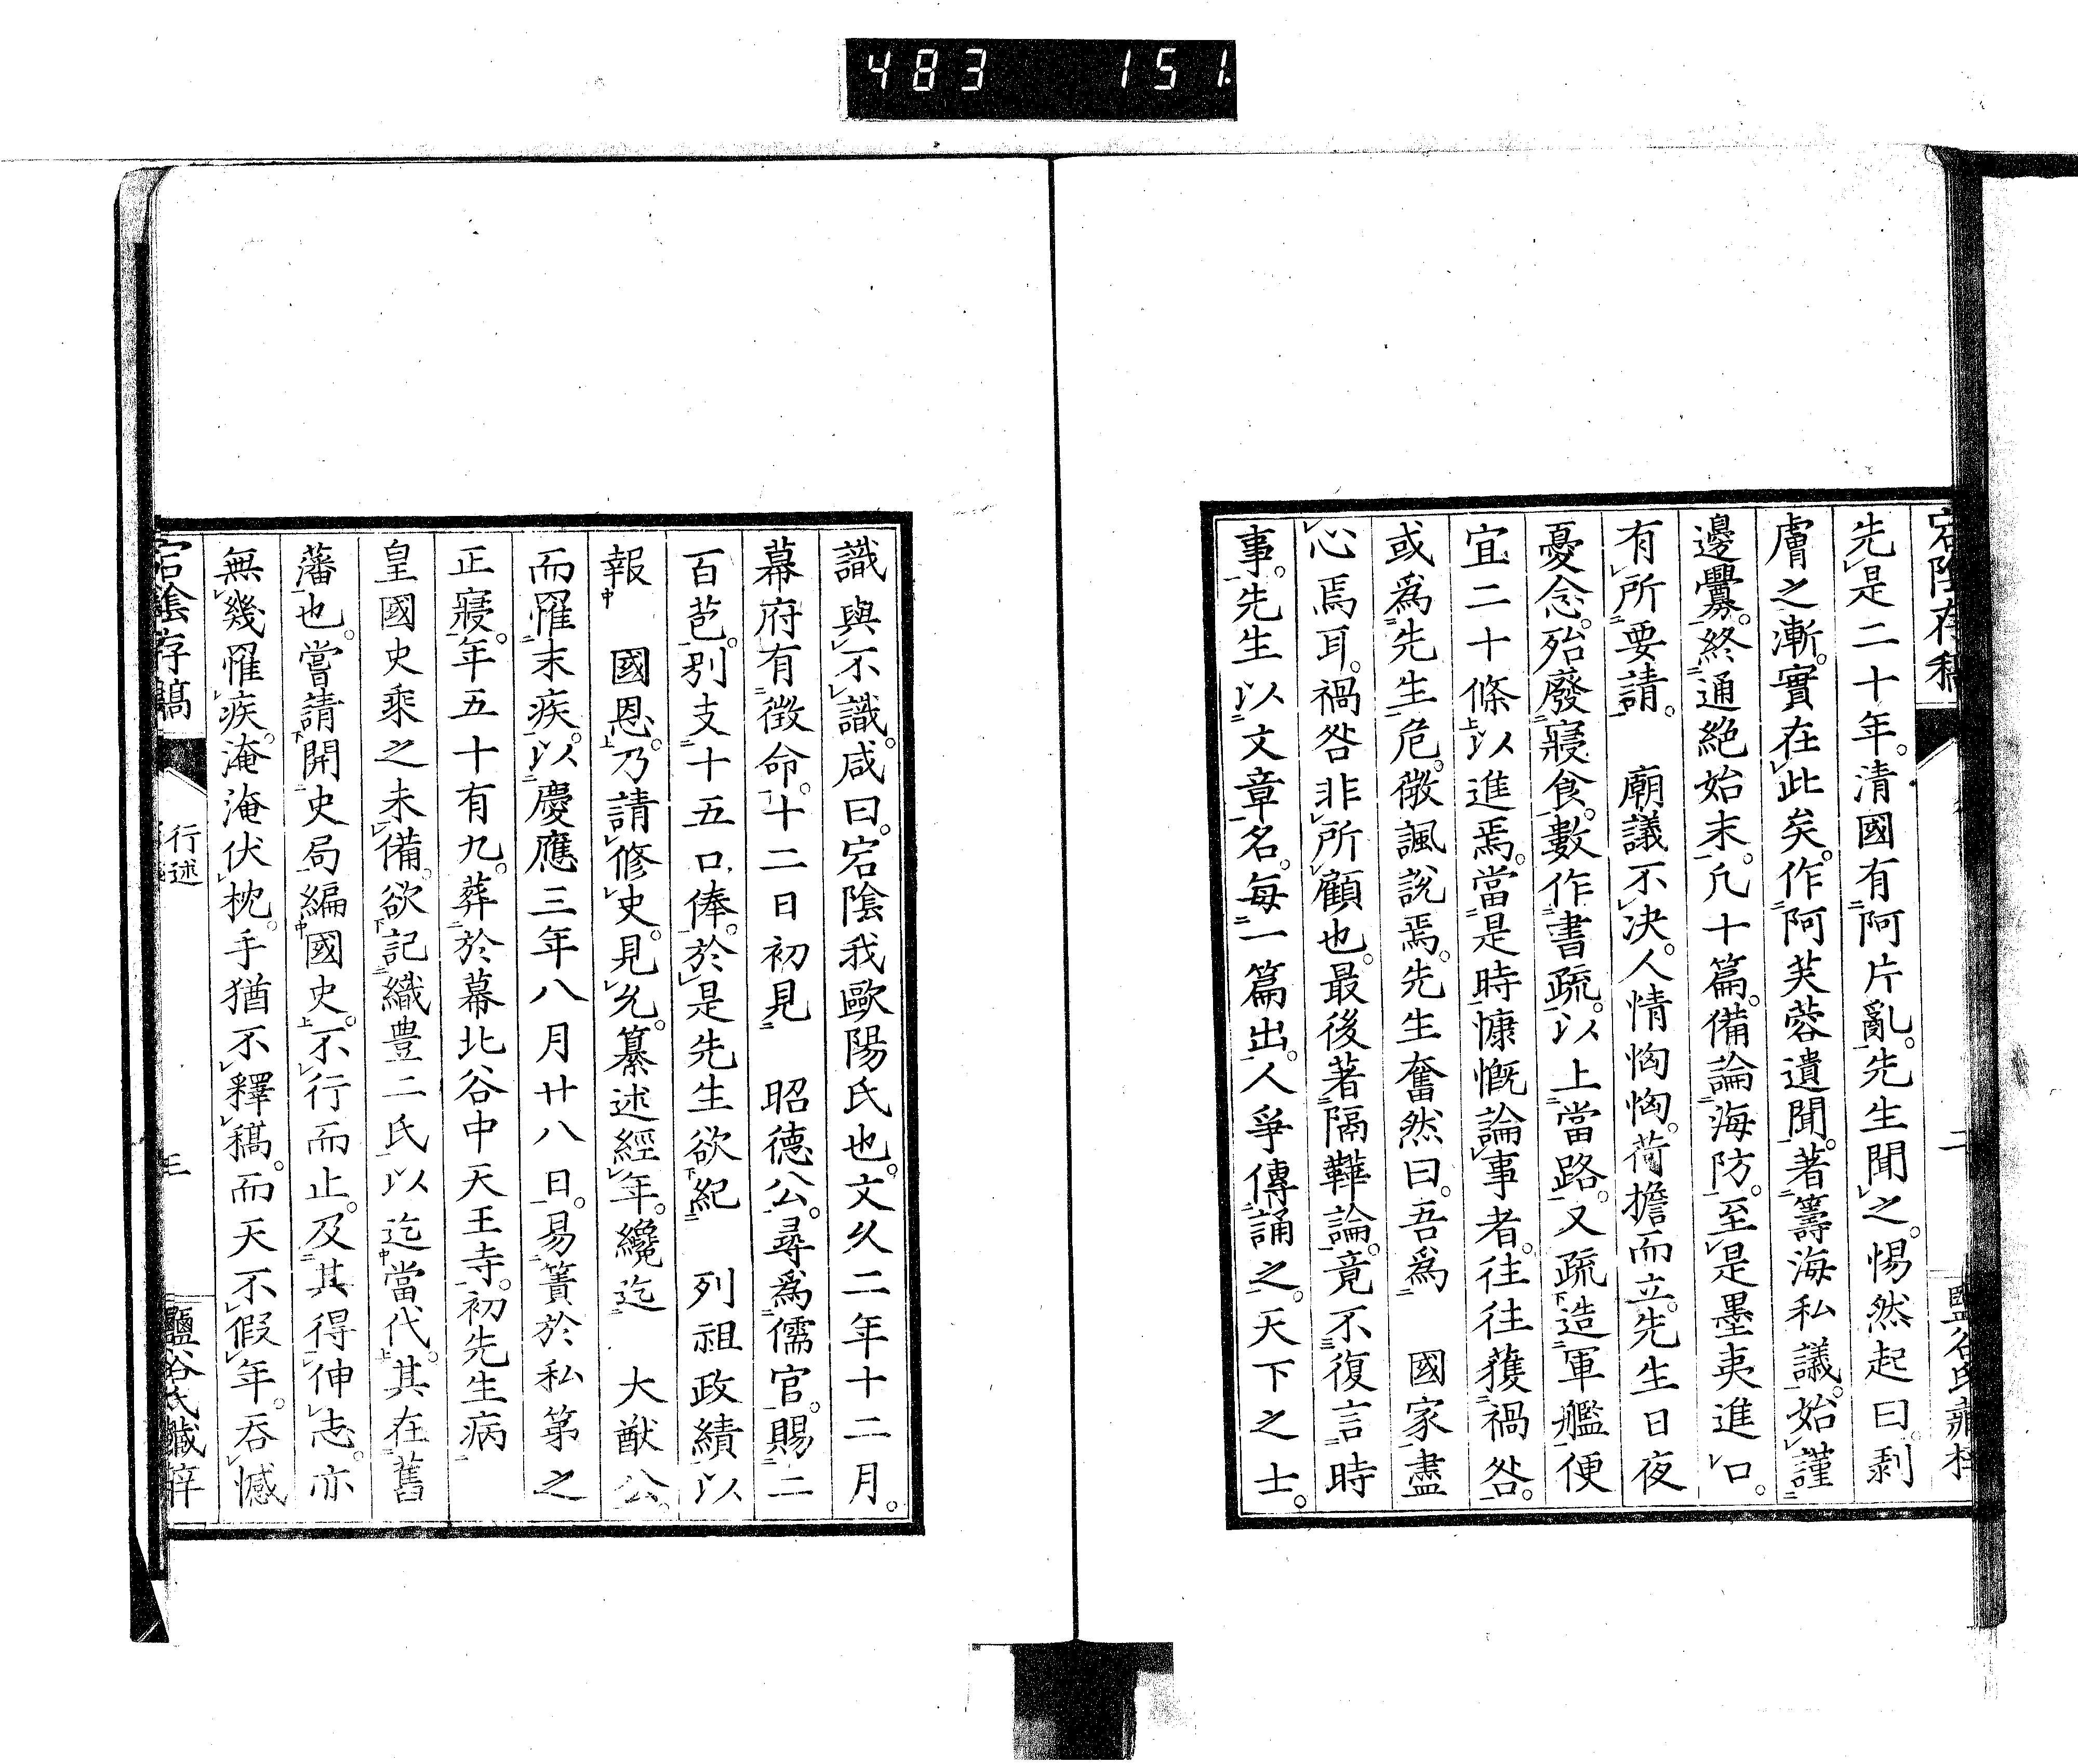 483 151
宕陰存稿
先是二十年。清國有阿片亂。先生聞之。惕然起曰。剥
膚之漸。實在此矣。作阿芙蓉遺聞。著籌海私議。始謹
邊釁。終通絶始末。凡十篇。備論海防。至是墨夷進口。
有所要請。 廟議不决。人情恟恟。荷擔而立。先生日夜
憂念。殆廢寢食。數作書疏。以上當路。又疏造軍艦便
宜二十條以進焉。當是時慷慨論事者。往往獲禍咎。
或爲先生危。微諷説焉。先生奮然曰。吾爲 國家盡
心焉耳。禍咎非所顧也。最後著隔鞾論。竟不復言時
事。先生以文章名。每一篇出。人爭傳誦之。天下之士。
識與不識。咸曰。宕陰我歐陽氏也。文久二年十二月。
幕府有徴命。十二日初見 昭德公。尋爲儒官。賜二
百苞。別支十五口俸。於是先生欲紀 列祖政績以
報 國恩。乃請修史。見允。纂述經年。纔迄 大猷公。
而罹末疾。以慶應三年八月廿八日。易簀於私第之
正寢。年五十有九。葬於幕北谷中天王寺。初先生病
皇國史乘之未備。欲記織豊二氏以迄當代。其在舊
藩也。嘗請開史局編國史。不行而止。及其得伸志。亦
無幾罹疾。淹淹伏枕。手猶不釋稿。而天不假年。吞憾
宕陰存稿
行述
三
鹽谷氏藏梓